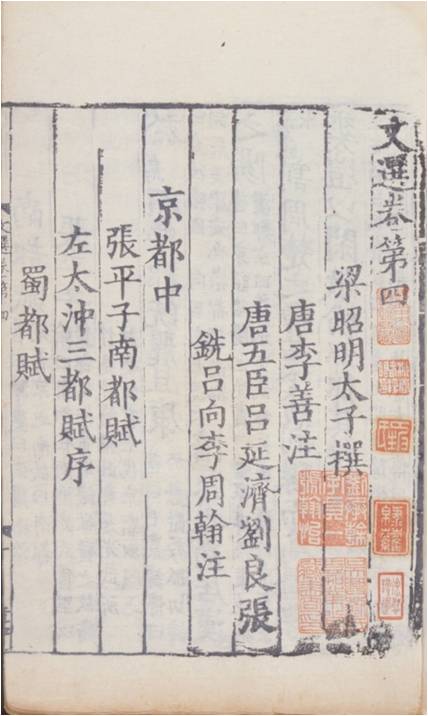 文選卷第四
梁昭明太子撰
唐李善注
唐五臣呂延濟劉良張
銑呂向李周翰注
京都中
張平子南都賦
左太沖三都賦序
蜀都賦